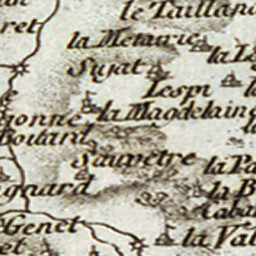 le Taillan
ret
la Metairie
la L
Sujat
Lespi
gonne
la Magdelain
Boutard
Sauvetre
la Pa
gnard
la B
Caba
Genet
la Val
et